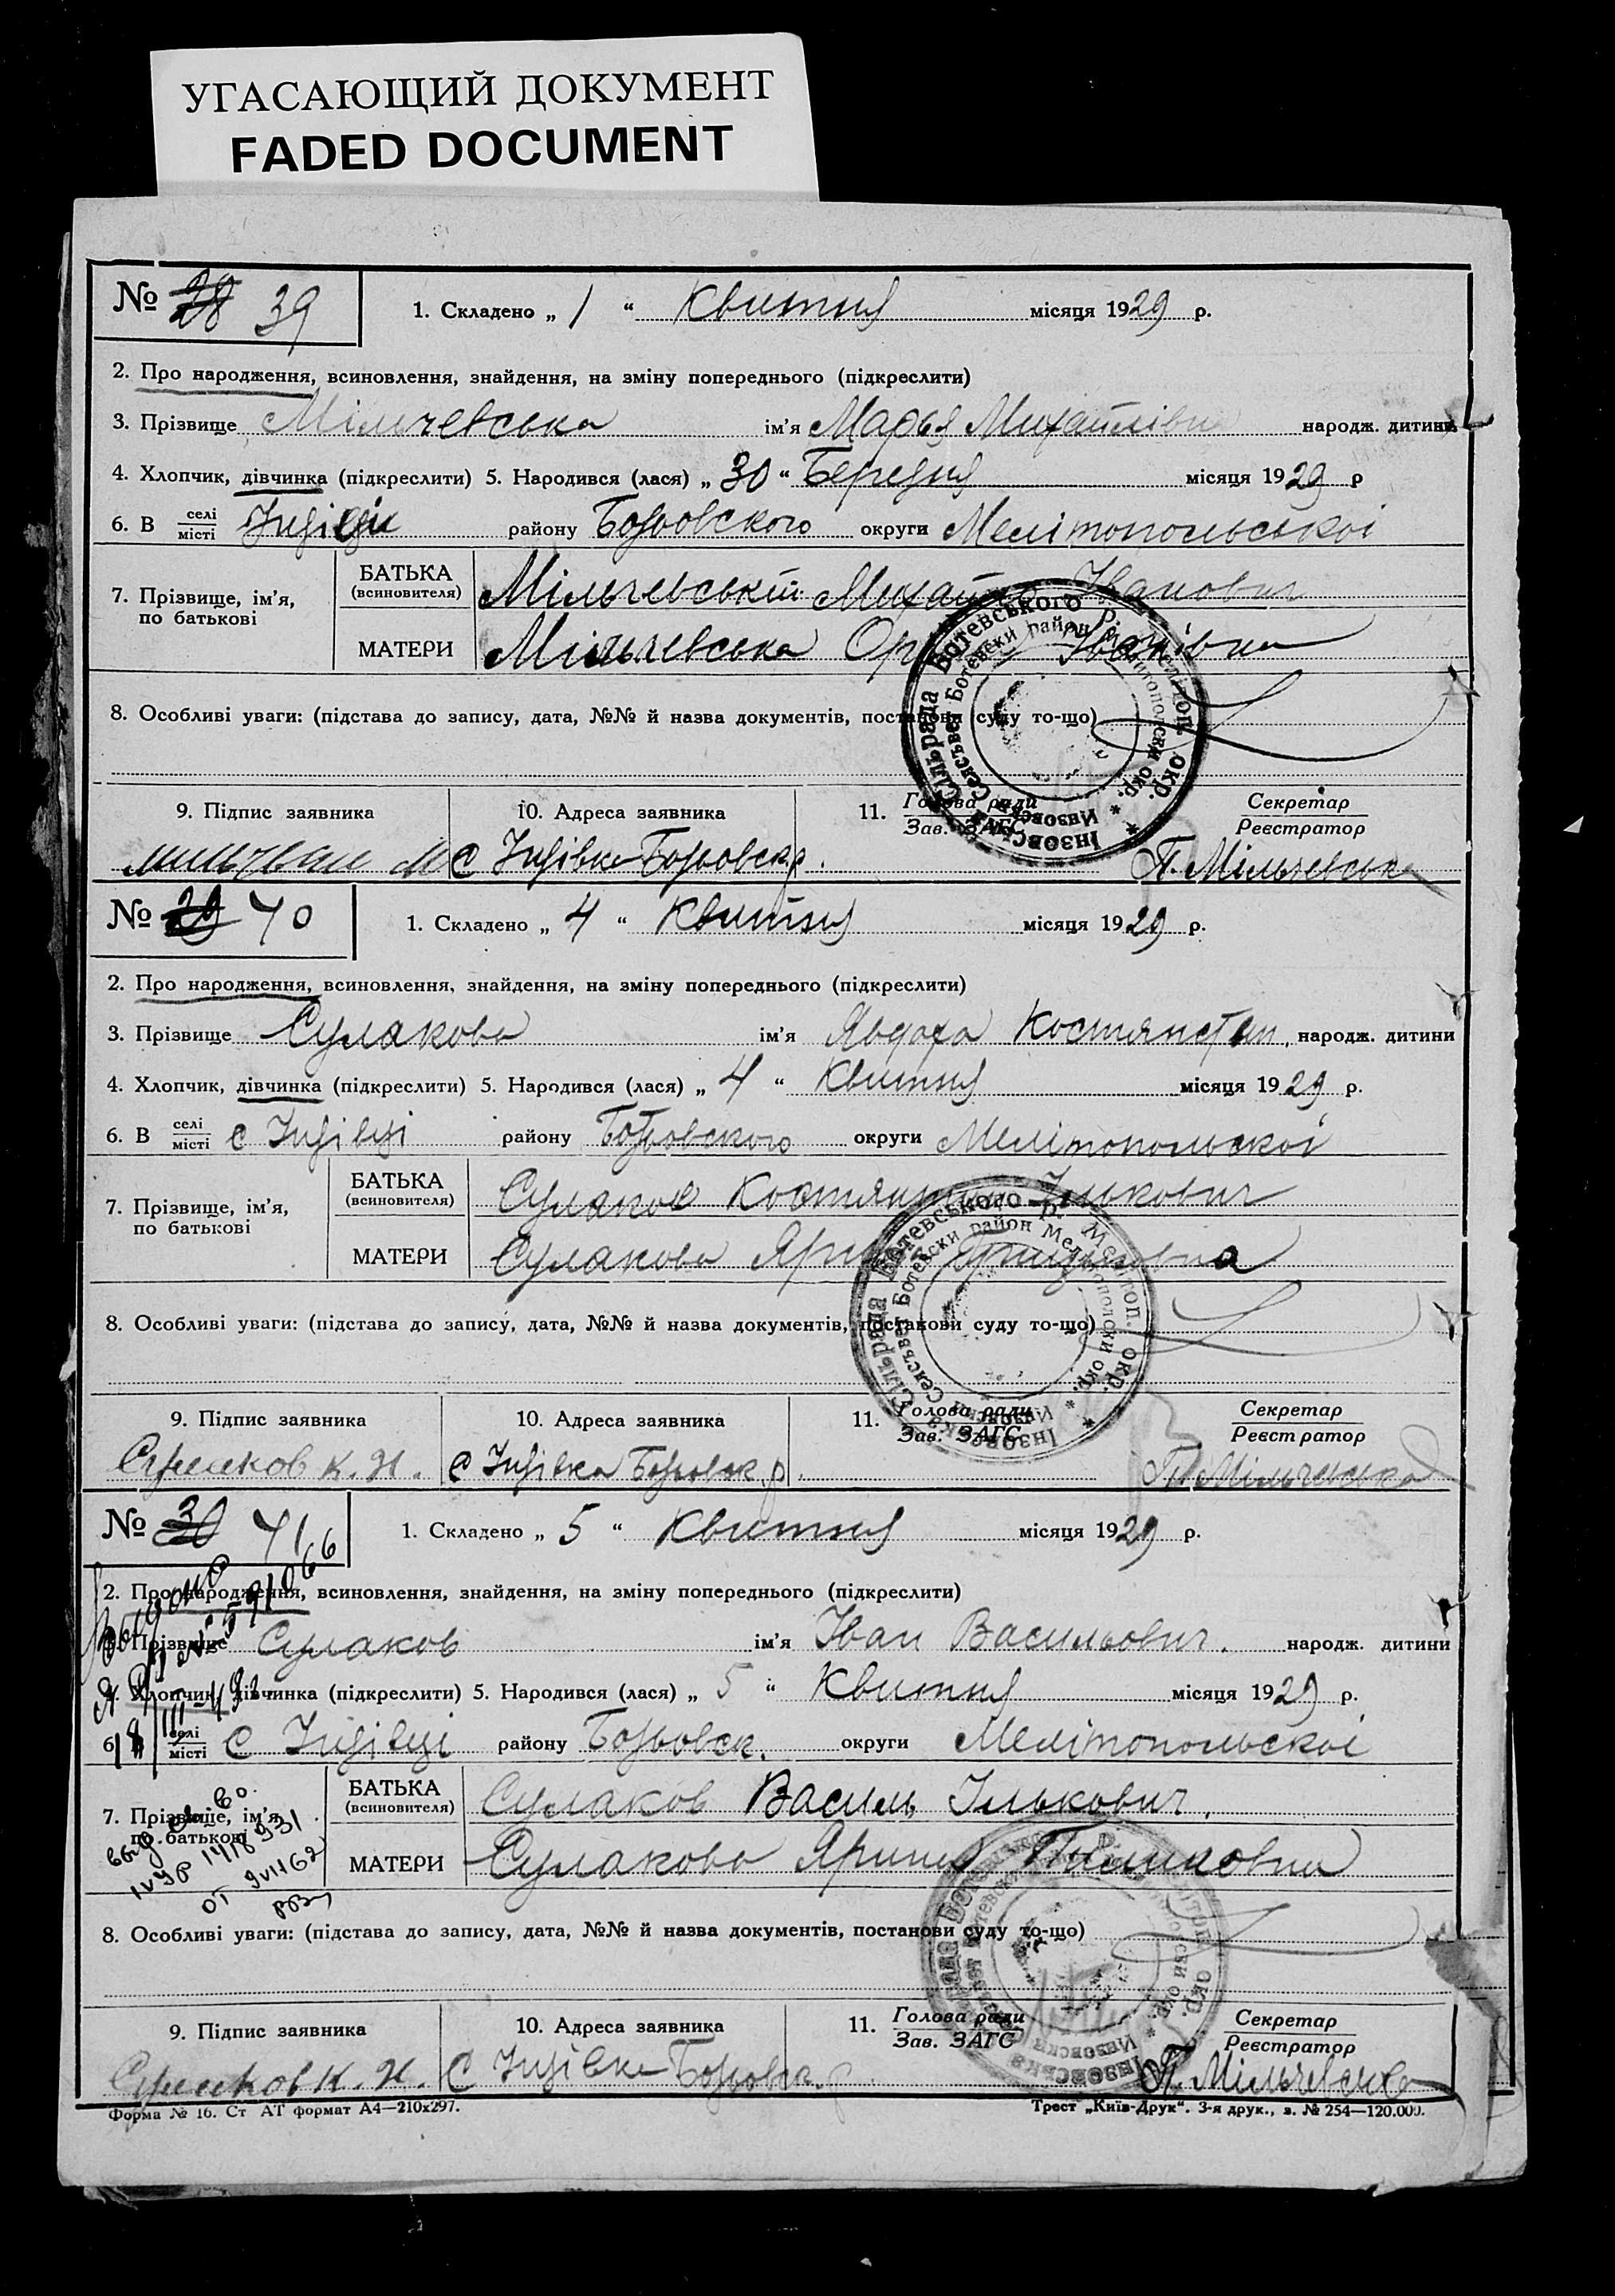 УГАСАЮЩИЙ ДОКУМЕНТ
FADED DOCUMENT
№ 28 39 1. Складено „ 1 “ Квитня місяця 1929 р.
2. Про народження, всиновлення, знайдення, на зміну попереднього (підкреслити)
3. Прізвище Мільчевська ім'я Марья Михайлівна народж. дитини
4. Хлопчик, дівчинка (підкреслити) 5. Народився (лася) „ 30 “ Березня місяця 1929 р
6. В селі місті Інзівці району Ботьовского округи Мелітопольської
7. Прізвище, ім'я, по батькові БАТЬКА (всиновителя) Мільчевський Михайло Іванович
МАТЕРИ Мільчевська Іванівна
8. Особливі уваги: (підстава до запису, дата, №№ й назва документів, постанови суду то-що)
9. Підпис заявника 10. Адреса заявника 11. Голова ради Зав. ЗАГС Секретар Реєстратор
с Інзівка Ботьовск р. П. Мільчевська
Інзовська Сільрада Ботевського р. Мелітоп. окр.
Инзовски Селсъвет Ботевски район Мелитополски окр.
№ 29 40 1. Складено „ 4 “ Квитня місяця 1929 р.
2. Про народження, всиновлення, знайдення, на зміну попереднього (підкреслити)
3. Прізвище Сулакова ім'я Явдоха Костянтин. народж. дитини
4. Хлопчик, дівчинка (підкреслити) 5. Народився (лася) „ 4 “ Квитня місяця 1929 р.
6. В селі місті с Інзівці району Ботьовского округи Мелітопольскої
7. Прізвище, ім'я, по батькові БАТЬКА (всиновителя) Сулаков Костянтин Ількович
МАТЕРИ Сулакова
8. Особливі уваги: (підстава до запису, дата, №№ й назва документів, постанови суду то-що)
9. Підпис заявника 10. Адреса заявника 11. Голова ради Зав. ЗАГС Секретар Реєстратор
Сулаков К. И. с Інзівка Ботьовск. р. П. Мільчевська
Інзовська Сільрада Ботевського р. Мелітоп. окр.
Инзовски Селсъвет Ботевски район Мелитополски окр.
№ 30 41 1. Складено „ 5 “ Квитня місяця 1929 р.
2. Про народження, всиновлення, знайдення, на зміну попереднього (підкреслити)
3. Прізвище Сулаков ім'я Іван Васильович. народж. дитини
4. Хлопчик, дівчинка (підкреслити) 5. Народився (лася) „ 5 “ Квитня місяця 1929 р.
6. В селі місті с Інзівці району Ботьовск. округи Мелітопольскої
7. Прізвище, ім'я, по батькові БАТЬКА (всиновителя) Сулаков Василь Ількович.
МАТЕРИ Сулакова Ярина
8. Особливі уваги: (підстава до запису, дата, №№ й назва документів, постанови суду то-що)
9. Підпис заявника 10. Адреса заявника 11. Голова ради Зав. ЗАГС Секретар Реєстратор
Сулаков К. И. с Інзівка Ботьовск. р. П. Мільчевська
Форма № 16. Ст АТ формат А4—210х297. Трест „Київ-Друк“. 3-я друк., з. № 254—120.000.